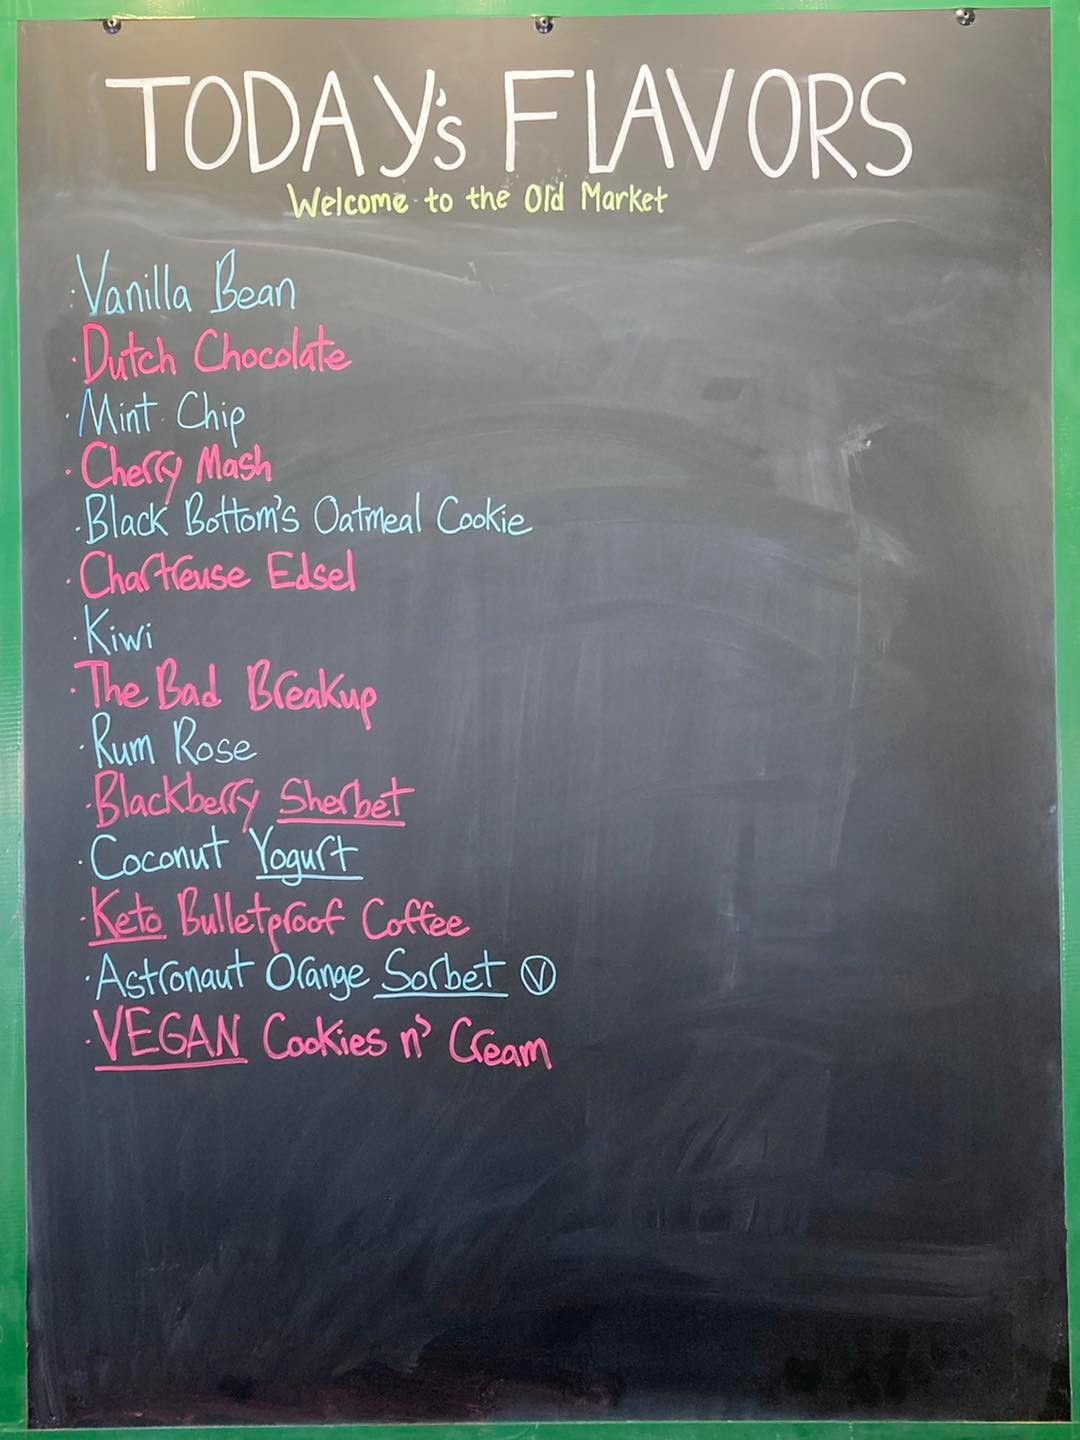 TODAY's FLAVORS
Welcome to the Old Market
· Vanilla Bean
· Dutch Chocolate
· Mint Chip
· Cherry Mash
· Black Bottom's Oatmeal Cookie
· Chartreuse Edsel
· Kiwi
· The Bad Breakup
· Rum Rose
· Blackberry Sherbet
· Coconut Yogurt
· Keto Bulletproof Coffee
· Astronaut Orange Sorbet Ⓥ
· VEGAN Cookies n' Cream